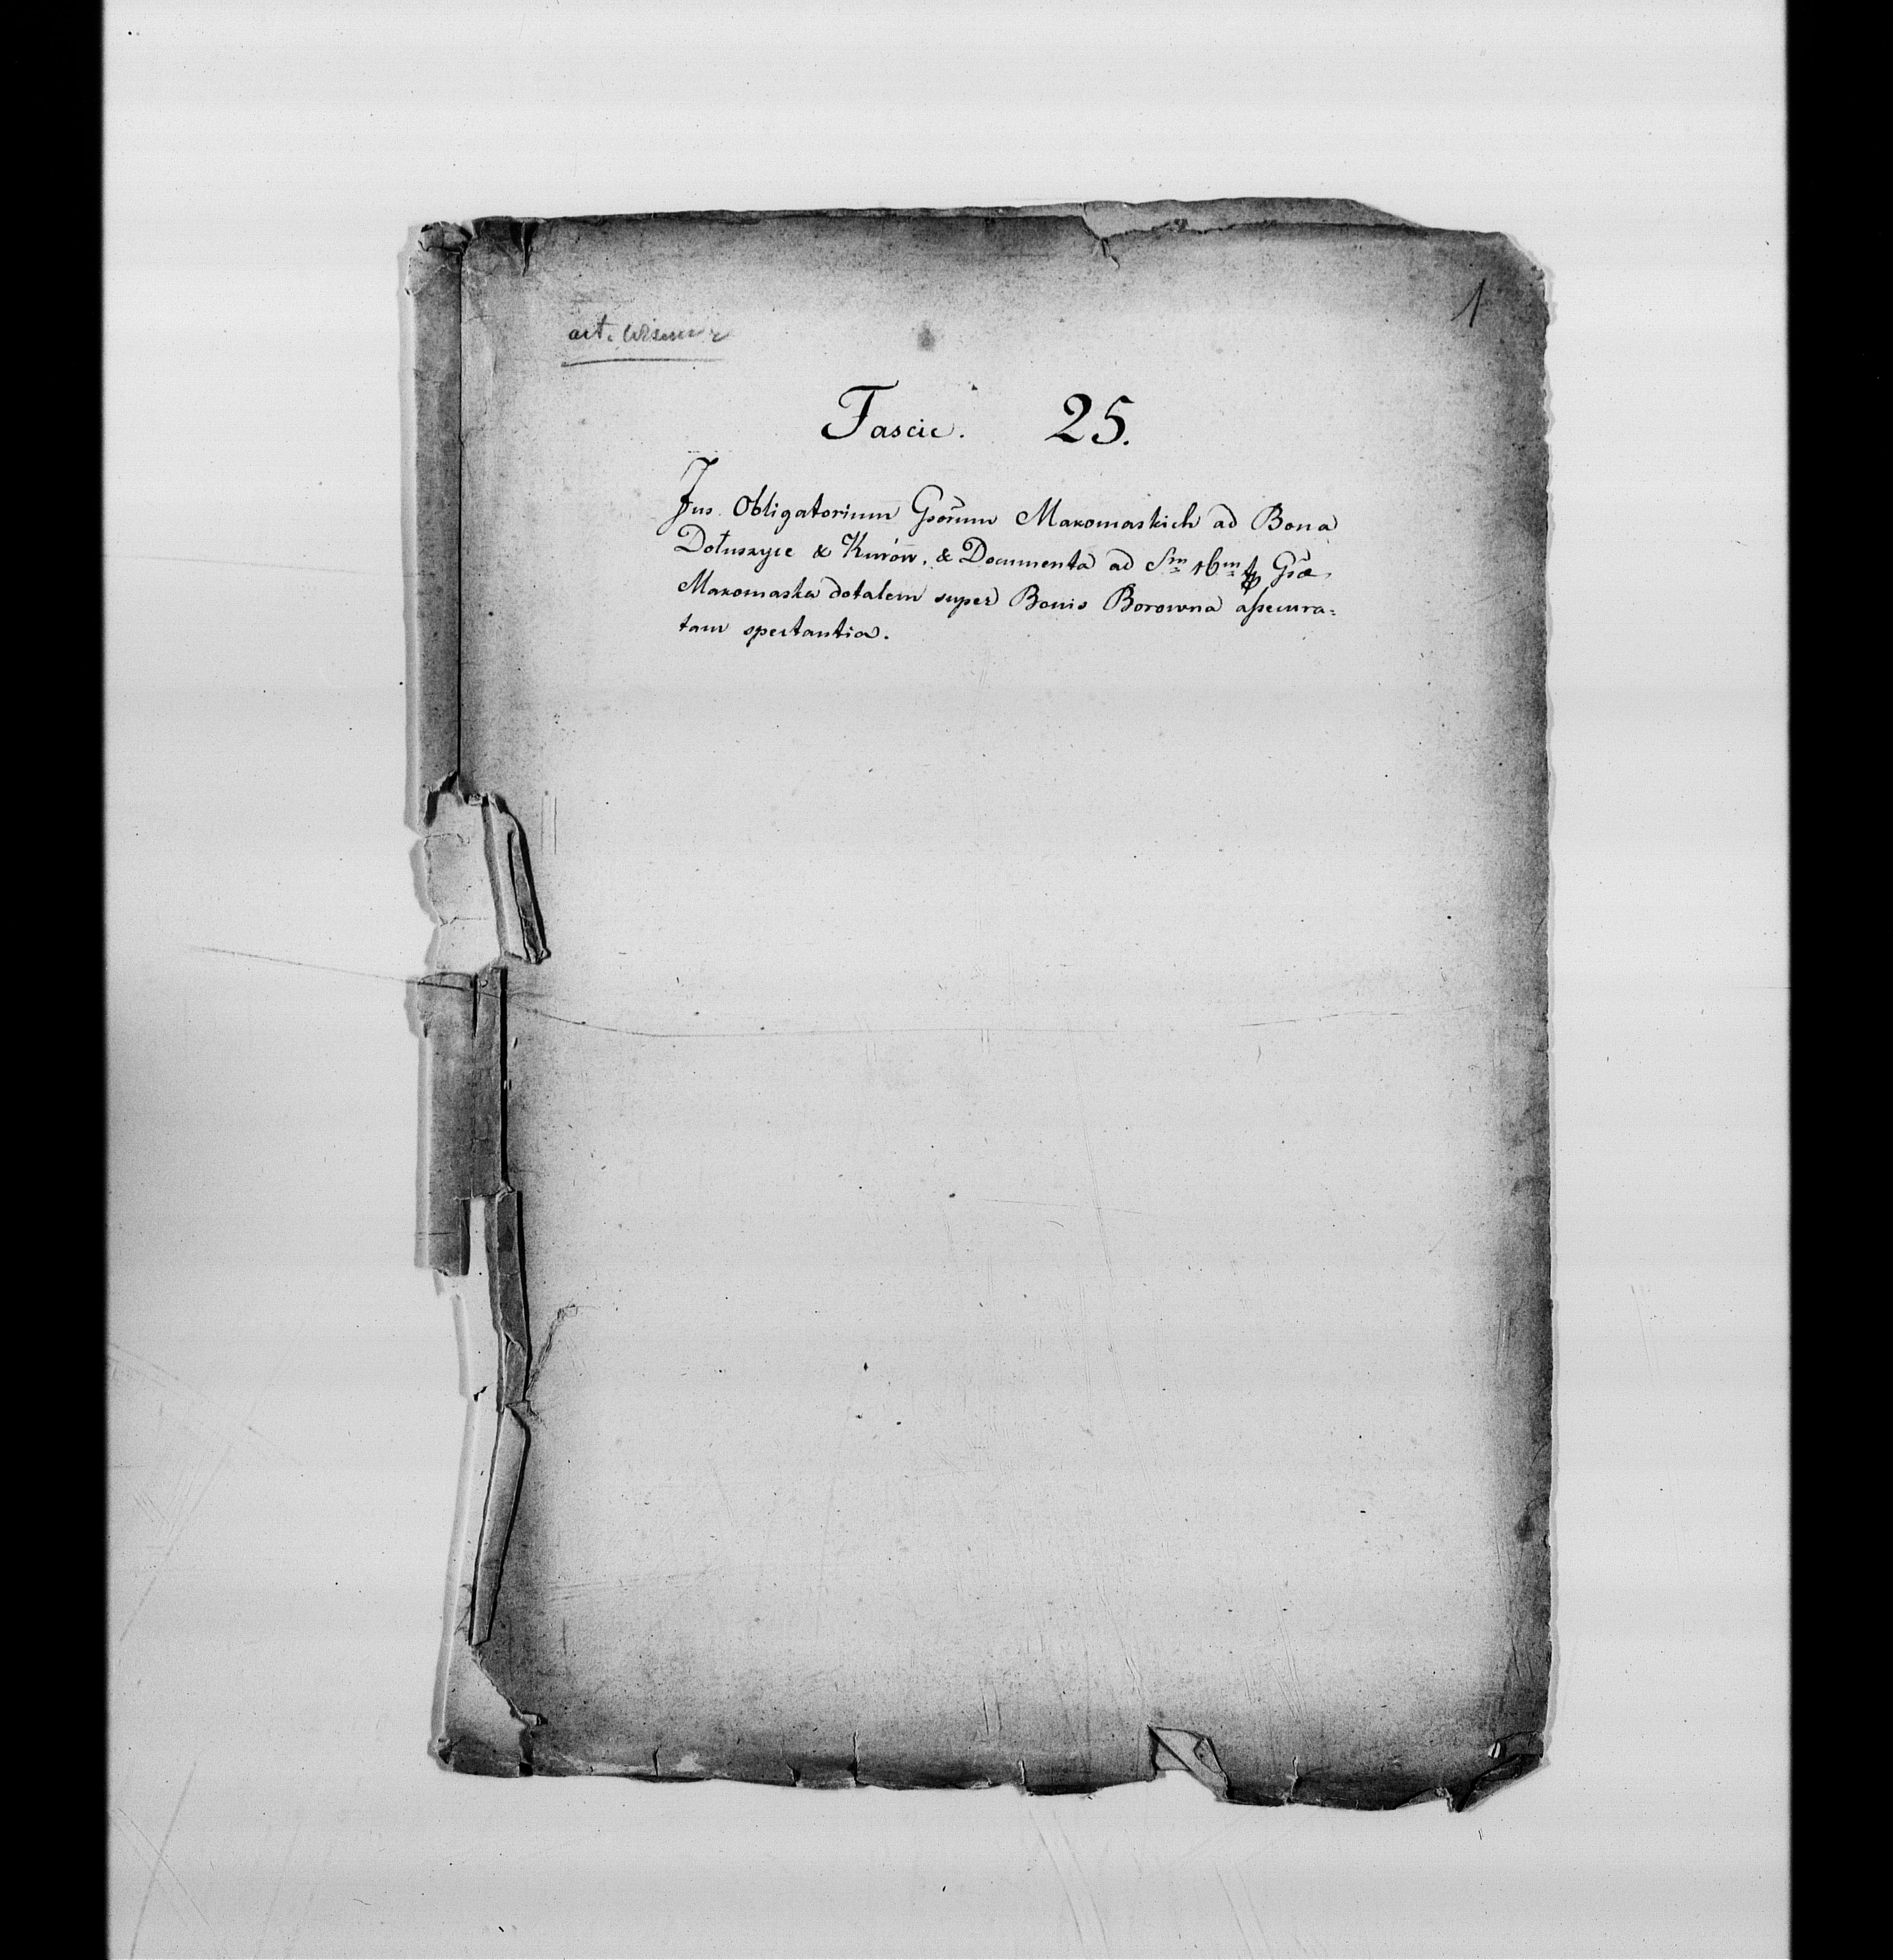 1
art.
Fascic. 25.
Jus Obligatorium Gsōrum Makomaskich ad Bona
Dołuszyce & Kurów, & Documenta ad Sm̱ 16m̱ Gsæ
Makomaska dotalem super Bonis Borowna assecura=
tam spectantia.